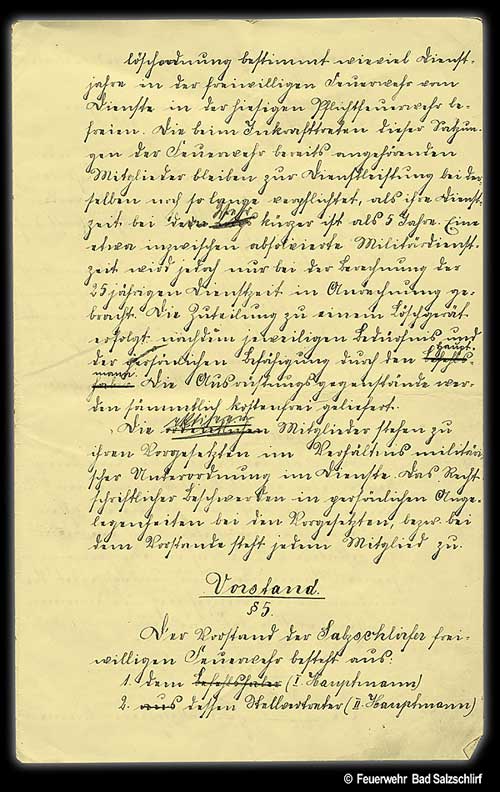 löschordnung bestimmt wieviel Dienst-
jahre in der freiwilligen Feuerwehr vom
Dienste in der hiesigen Pflichtfeuerwehr be-
freien. Die beim Inkrafttreten dieser Satzun-
gen der Feuerwehr bereits angehörenden
Mitglieder bleiben zur Dienstleistung bei der-
selben noch so lange verpflichtet, als ihre Dienst-
zeit bei kürzer ist als 5 Jahre. Eine
etwa inzwischen absolvierte Militärdienst-
zeit wird jedoch nur bei der Berechnung der
25 jährigen Dienstzeit in Anrechnung ge-
bracht. Die Zuteilung zu einem Löschgerät
erfolgt nachdem jeweiligen Bedürfnis und
der persönlichen Befähigung durch den Haupt-
mann. Die Ausrüstungsgegenstände wer-
den sämmtlich kostenfrei geliefert.
Die aktiven Mitglieder stehen zu
ihren Vorgesetzten im Verhältnis militäri-
scher Unterordnung im Dienste. Das Recht
schriftlicher Beschwerden in persönlichen Ange-
legenheiten bei den Vorgesetzten, bezw. bei
dem Vorstande steht jedem Mitglied zu.
Vorstand.
§ 5.
Der Vorstand der Salzschlirfer frei-
willigen Feuerwehr besteht aus:
1. dem Befehlshaber (I. Hauptmann)
2. aus dessen Stellvertreter (II. Hauptmann)
© Feuerwehr Bad Salzschlirf